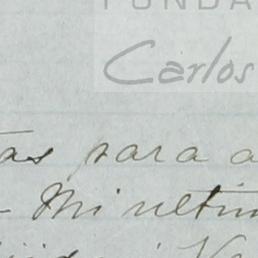 FUNDA
Carlos
tas para a
Mi ultim